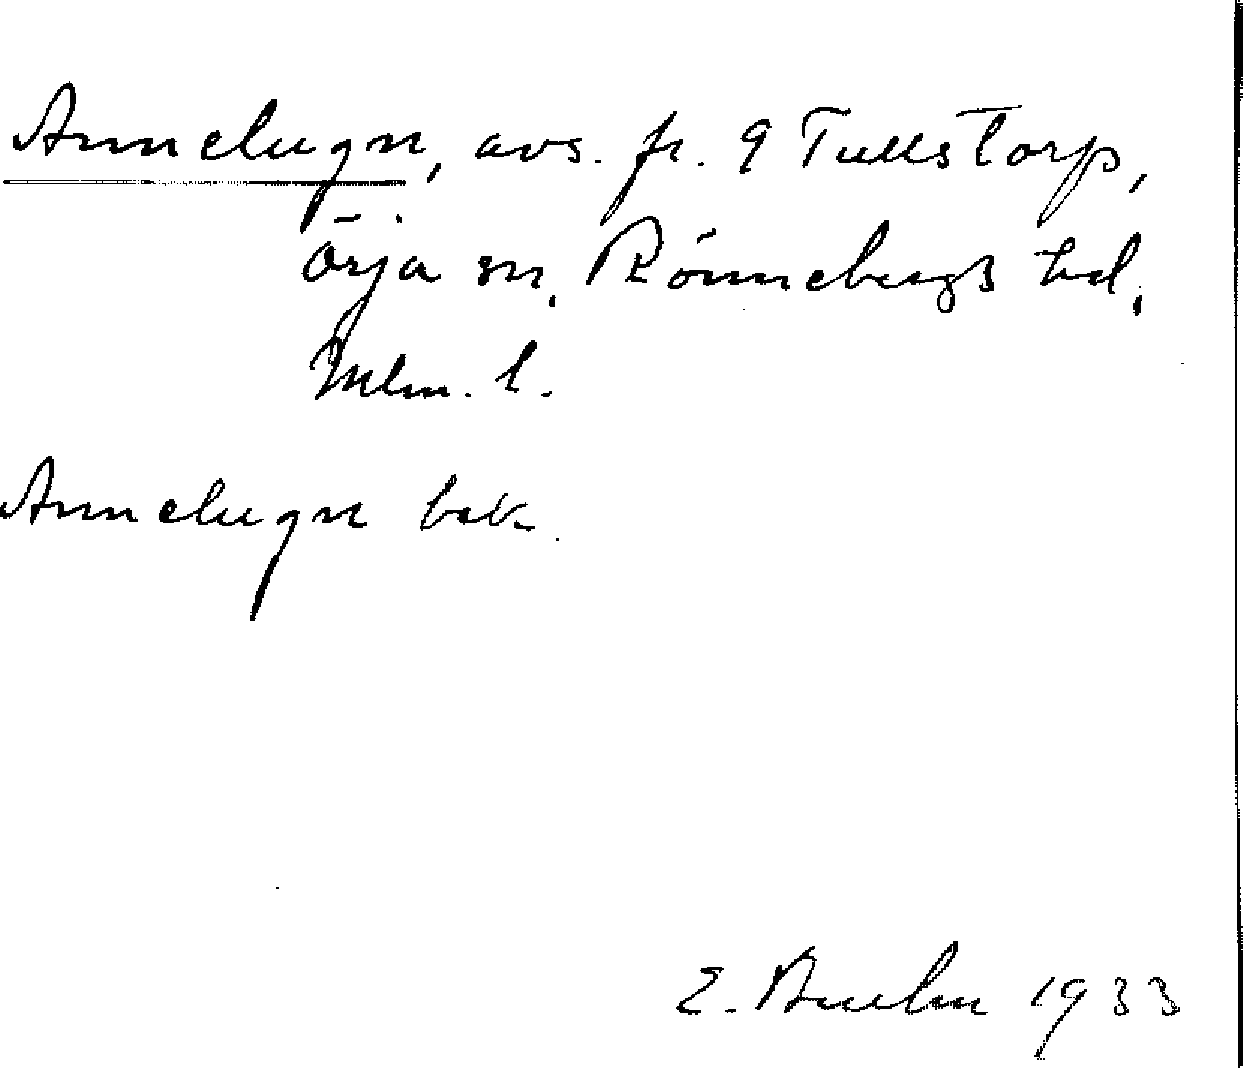 Annelugn, avs. fr. 9 Tullstorp,
Örja sn, Rönnebergs hd,
Mlm. l.
Annelugn bok.
E. Bruhn 1933